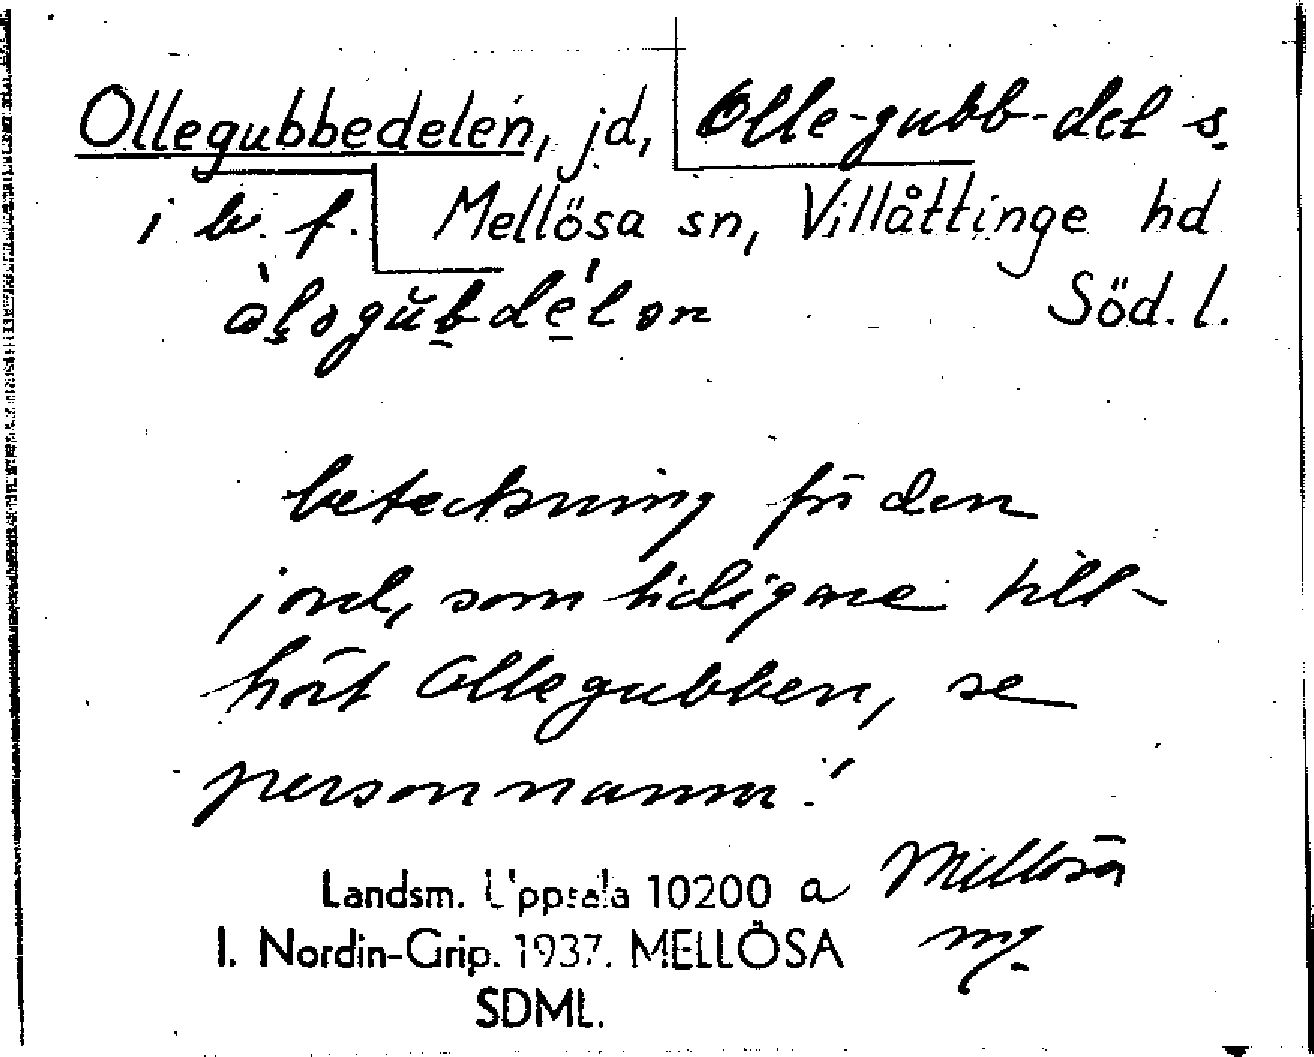 Ollegubbedelen, jd, Olle-gubb-del s.
i b. f. Mellösa sn, Villåttinge hd
Söd. l.
beteckning för den
jord, som tidigare till-
hört Ollegubben, se
personnamn!
Landsm. Uppsala 10200 a Mellösa
I. Nordin-Grip. 1937. MELLÖSA
SDML.